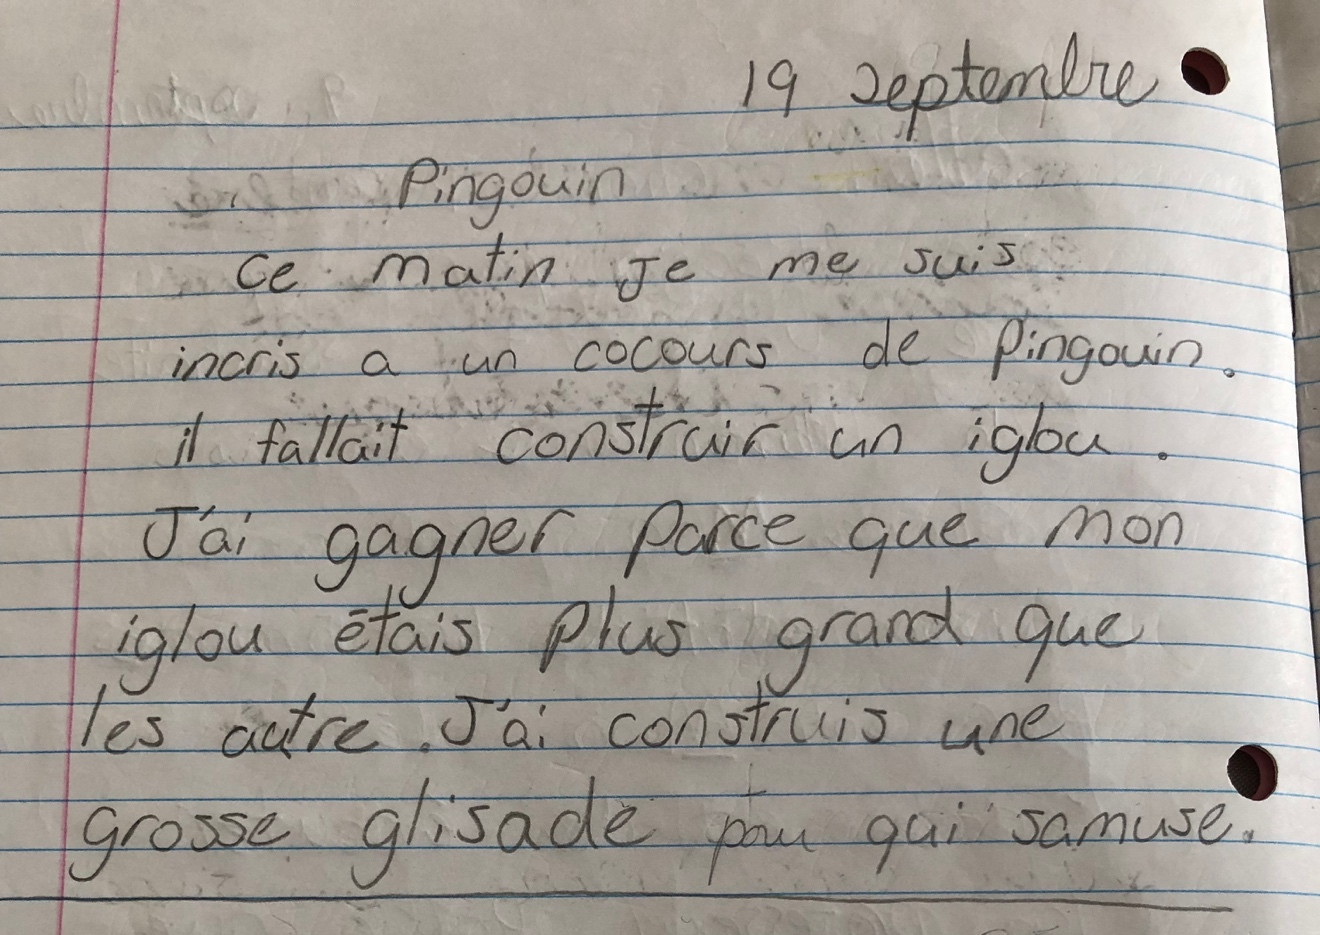 19 septembre
Pingouin
Ce matin Je me suis
incris a un cocours de Pingouin.
il fallait construir un iglou.
J'ai gagner Parce que mon
iglou étais plus grand que
les autre. J'ai construis une
grosse glisade pour qui samuse.